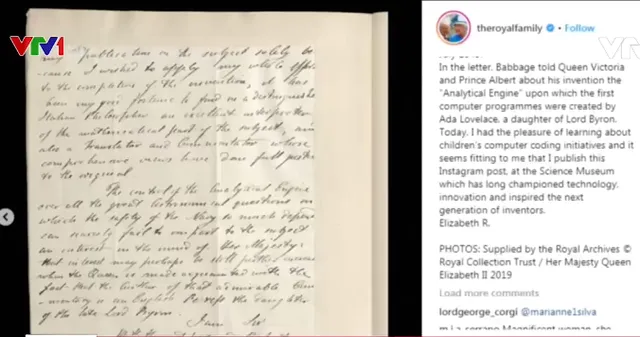 VTV1
my publication on the subject solely be
-cause I wished to apply my whole
to the completion of the invention, it has
been my good fortune to find in a distinguished
Italian Philosopher an excellent interpreter
of the mathematical part of the subject, and
also a Translator and Commentator whose
comprehensive views have done full justice
to the original
The control of the Analytical Engine
over all the great Astronomical questions on
which the safety of the Navy so much depends
can scarcely fail to impart to the subject
an interest in the mind of Her Majesty:
that interest may perhaps be still further
when the Queen is made acquainted with the
fact that the author of that admirable Com
-mentary is an English Peeress the daughter
of the late Lord Byron.
I am Sir
theroyalfamily • Follow
VTV
In the letter. Babbage told Queen Victoria
and Prince Albert about his invention the
"Analytical Engine" upon which the first
computer programmes were created by
Ada Lovelace, a daughter of Lord Byron.
Today. I had the pleasure of learning about
children's computer coding initiatives and it
seems fitting to me that I publish this
Instagram post, at the Science Museum
which has long championed technology.
innovation and inspired the next
generation of inventors.
Elizabeth R.
PHOTOS: Supplied by the Royal Archives ©
Royal Collection Trust / Her Majesty Queen
Elizabeth II 2019
Load more comments
lordgeorge_corgi @marianne1silva
m.j.a.serrano Magnificent woman, she